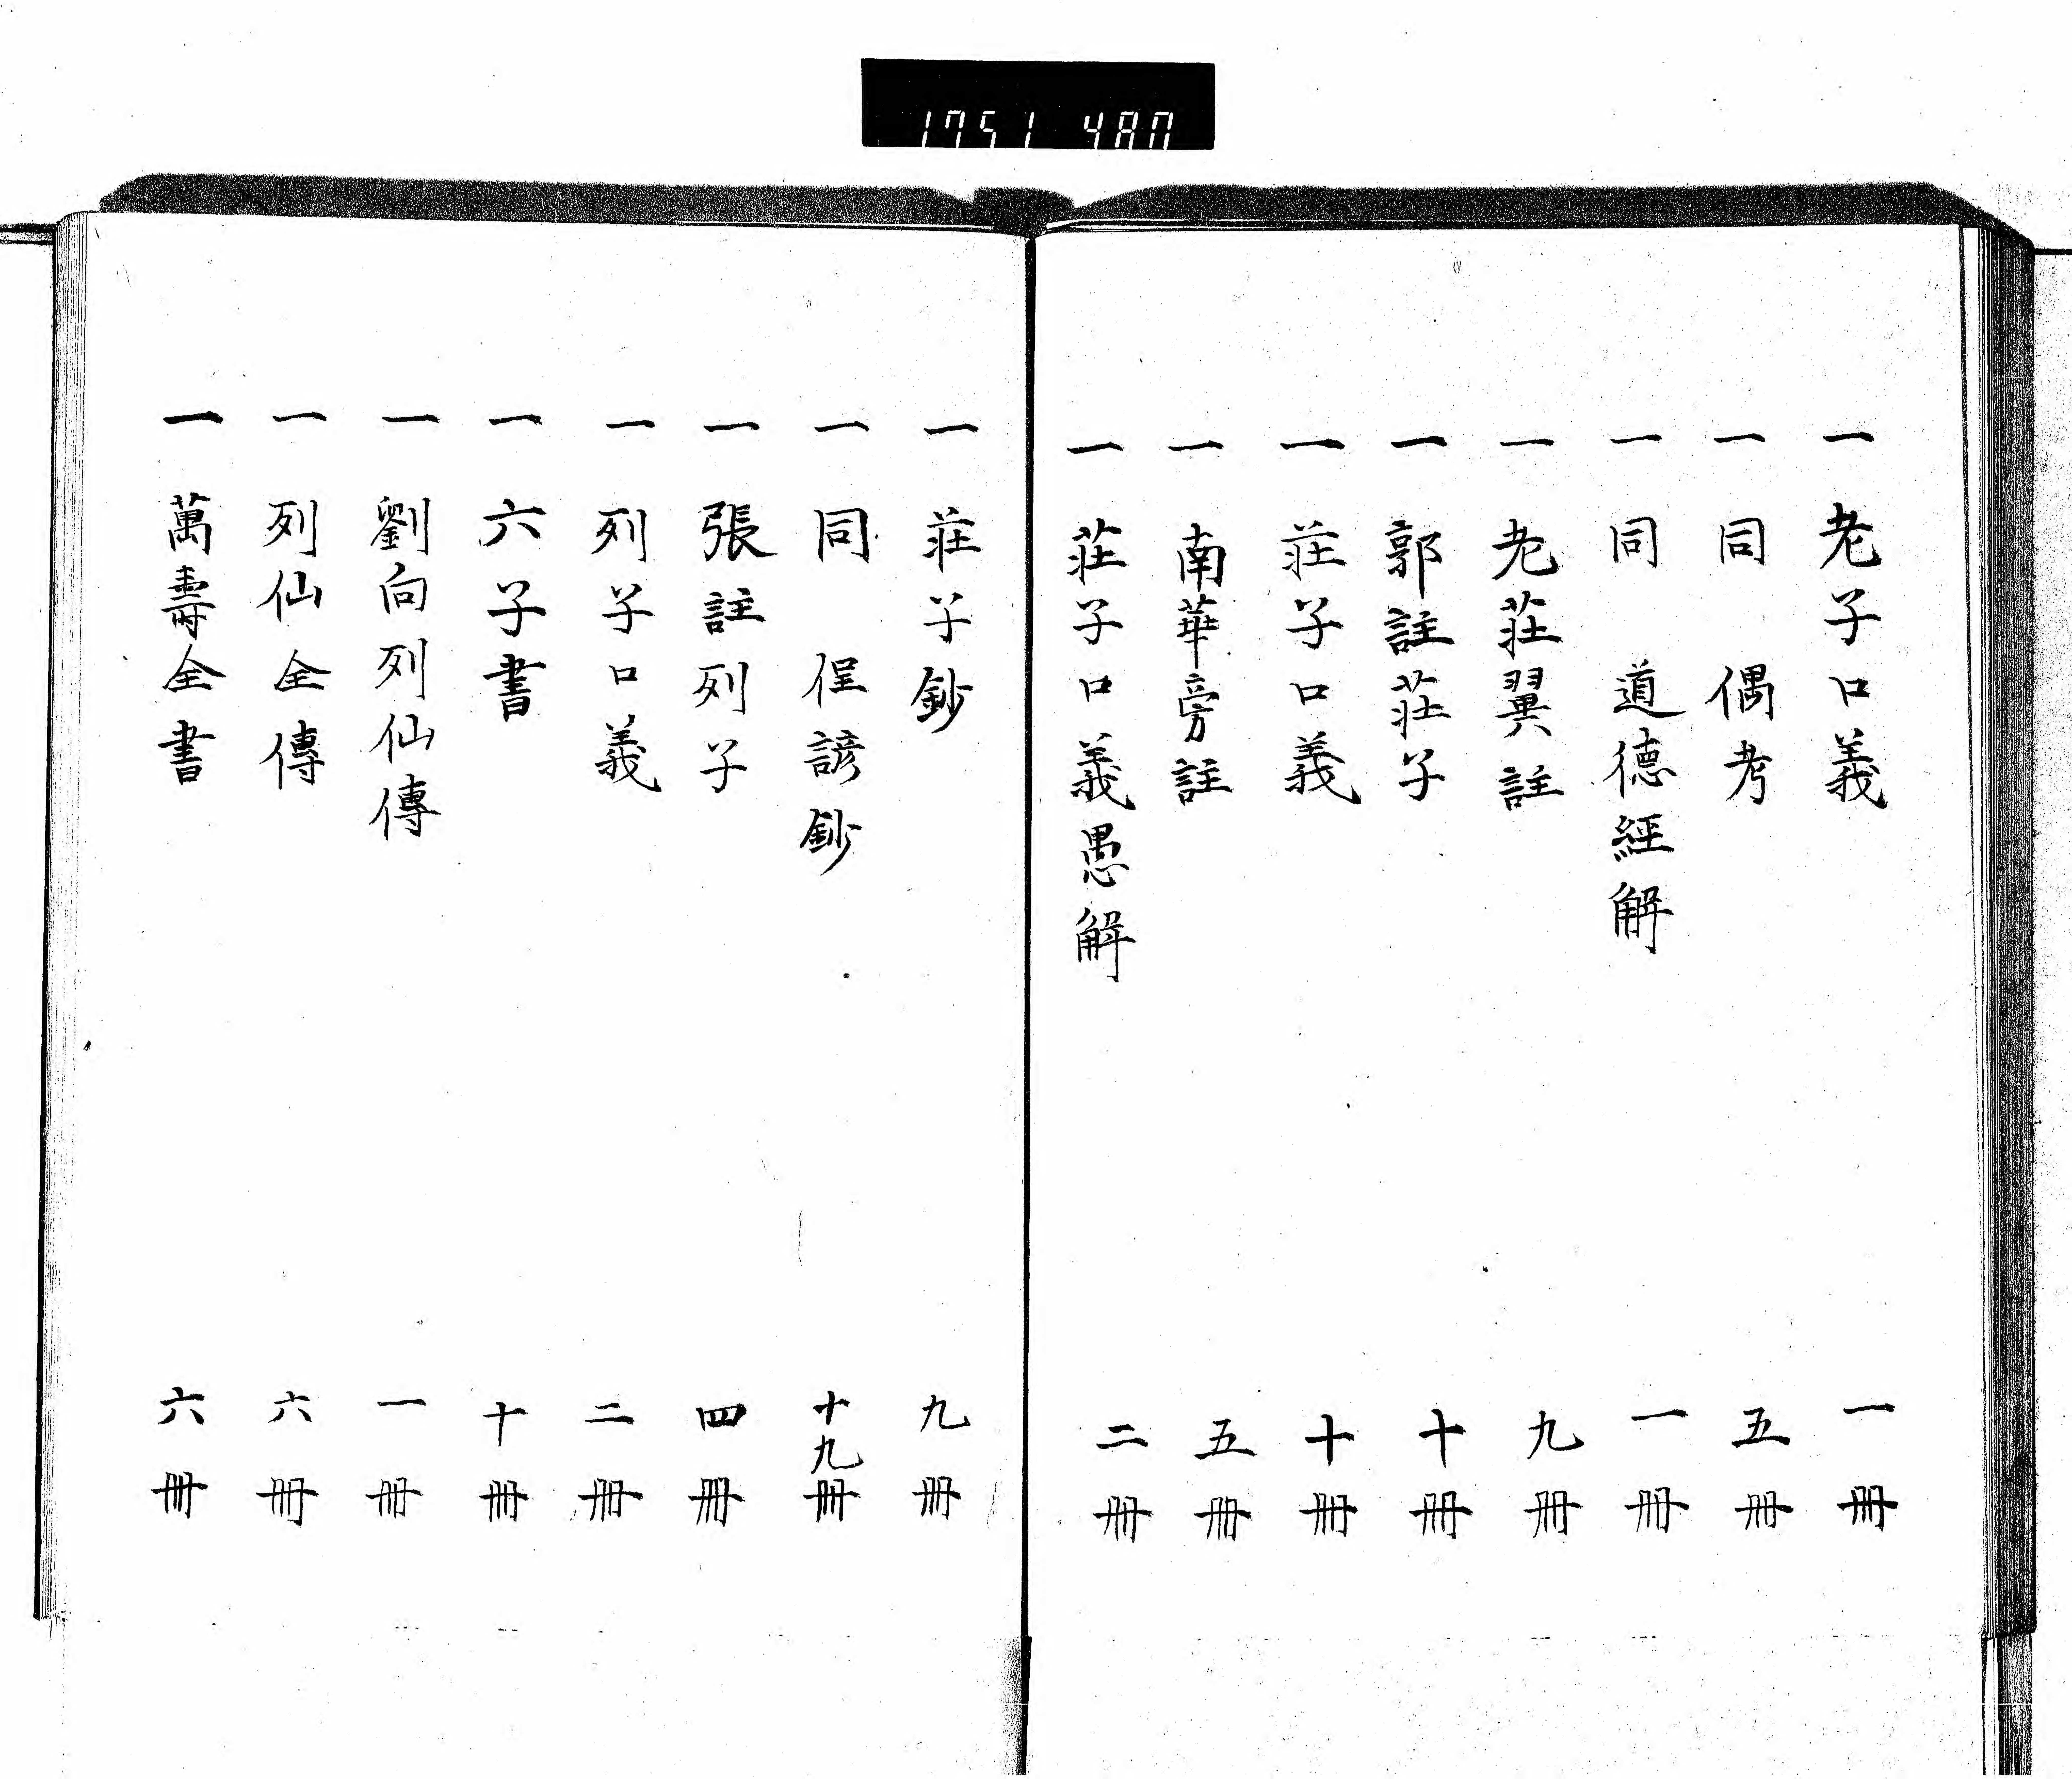 1751 480
一 老子口義 一冊
一 同 偶考 五冊
一 同 道德經解 一冊
一 老莊翼註 九冊
一 郭註莊子 十冊
一 莊子口義 十冊
一 南華旁註 五冊
一 莊子口義愚解 二冊
一 莊子鈔 九冊
一 同 俚諺鈔 十九冊
一 張註列子 四冊
一 列子口義 二冊
一 六子書 十冊
一 劉向列仙傳 一冊
一 列仙全傳 六冊
一 萬壽全書 六冊